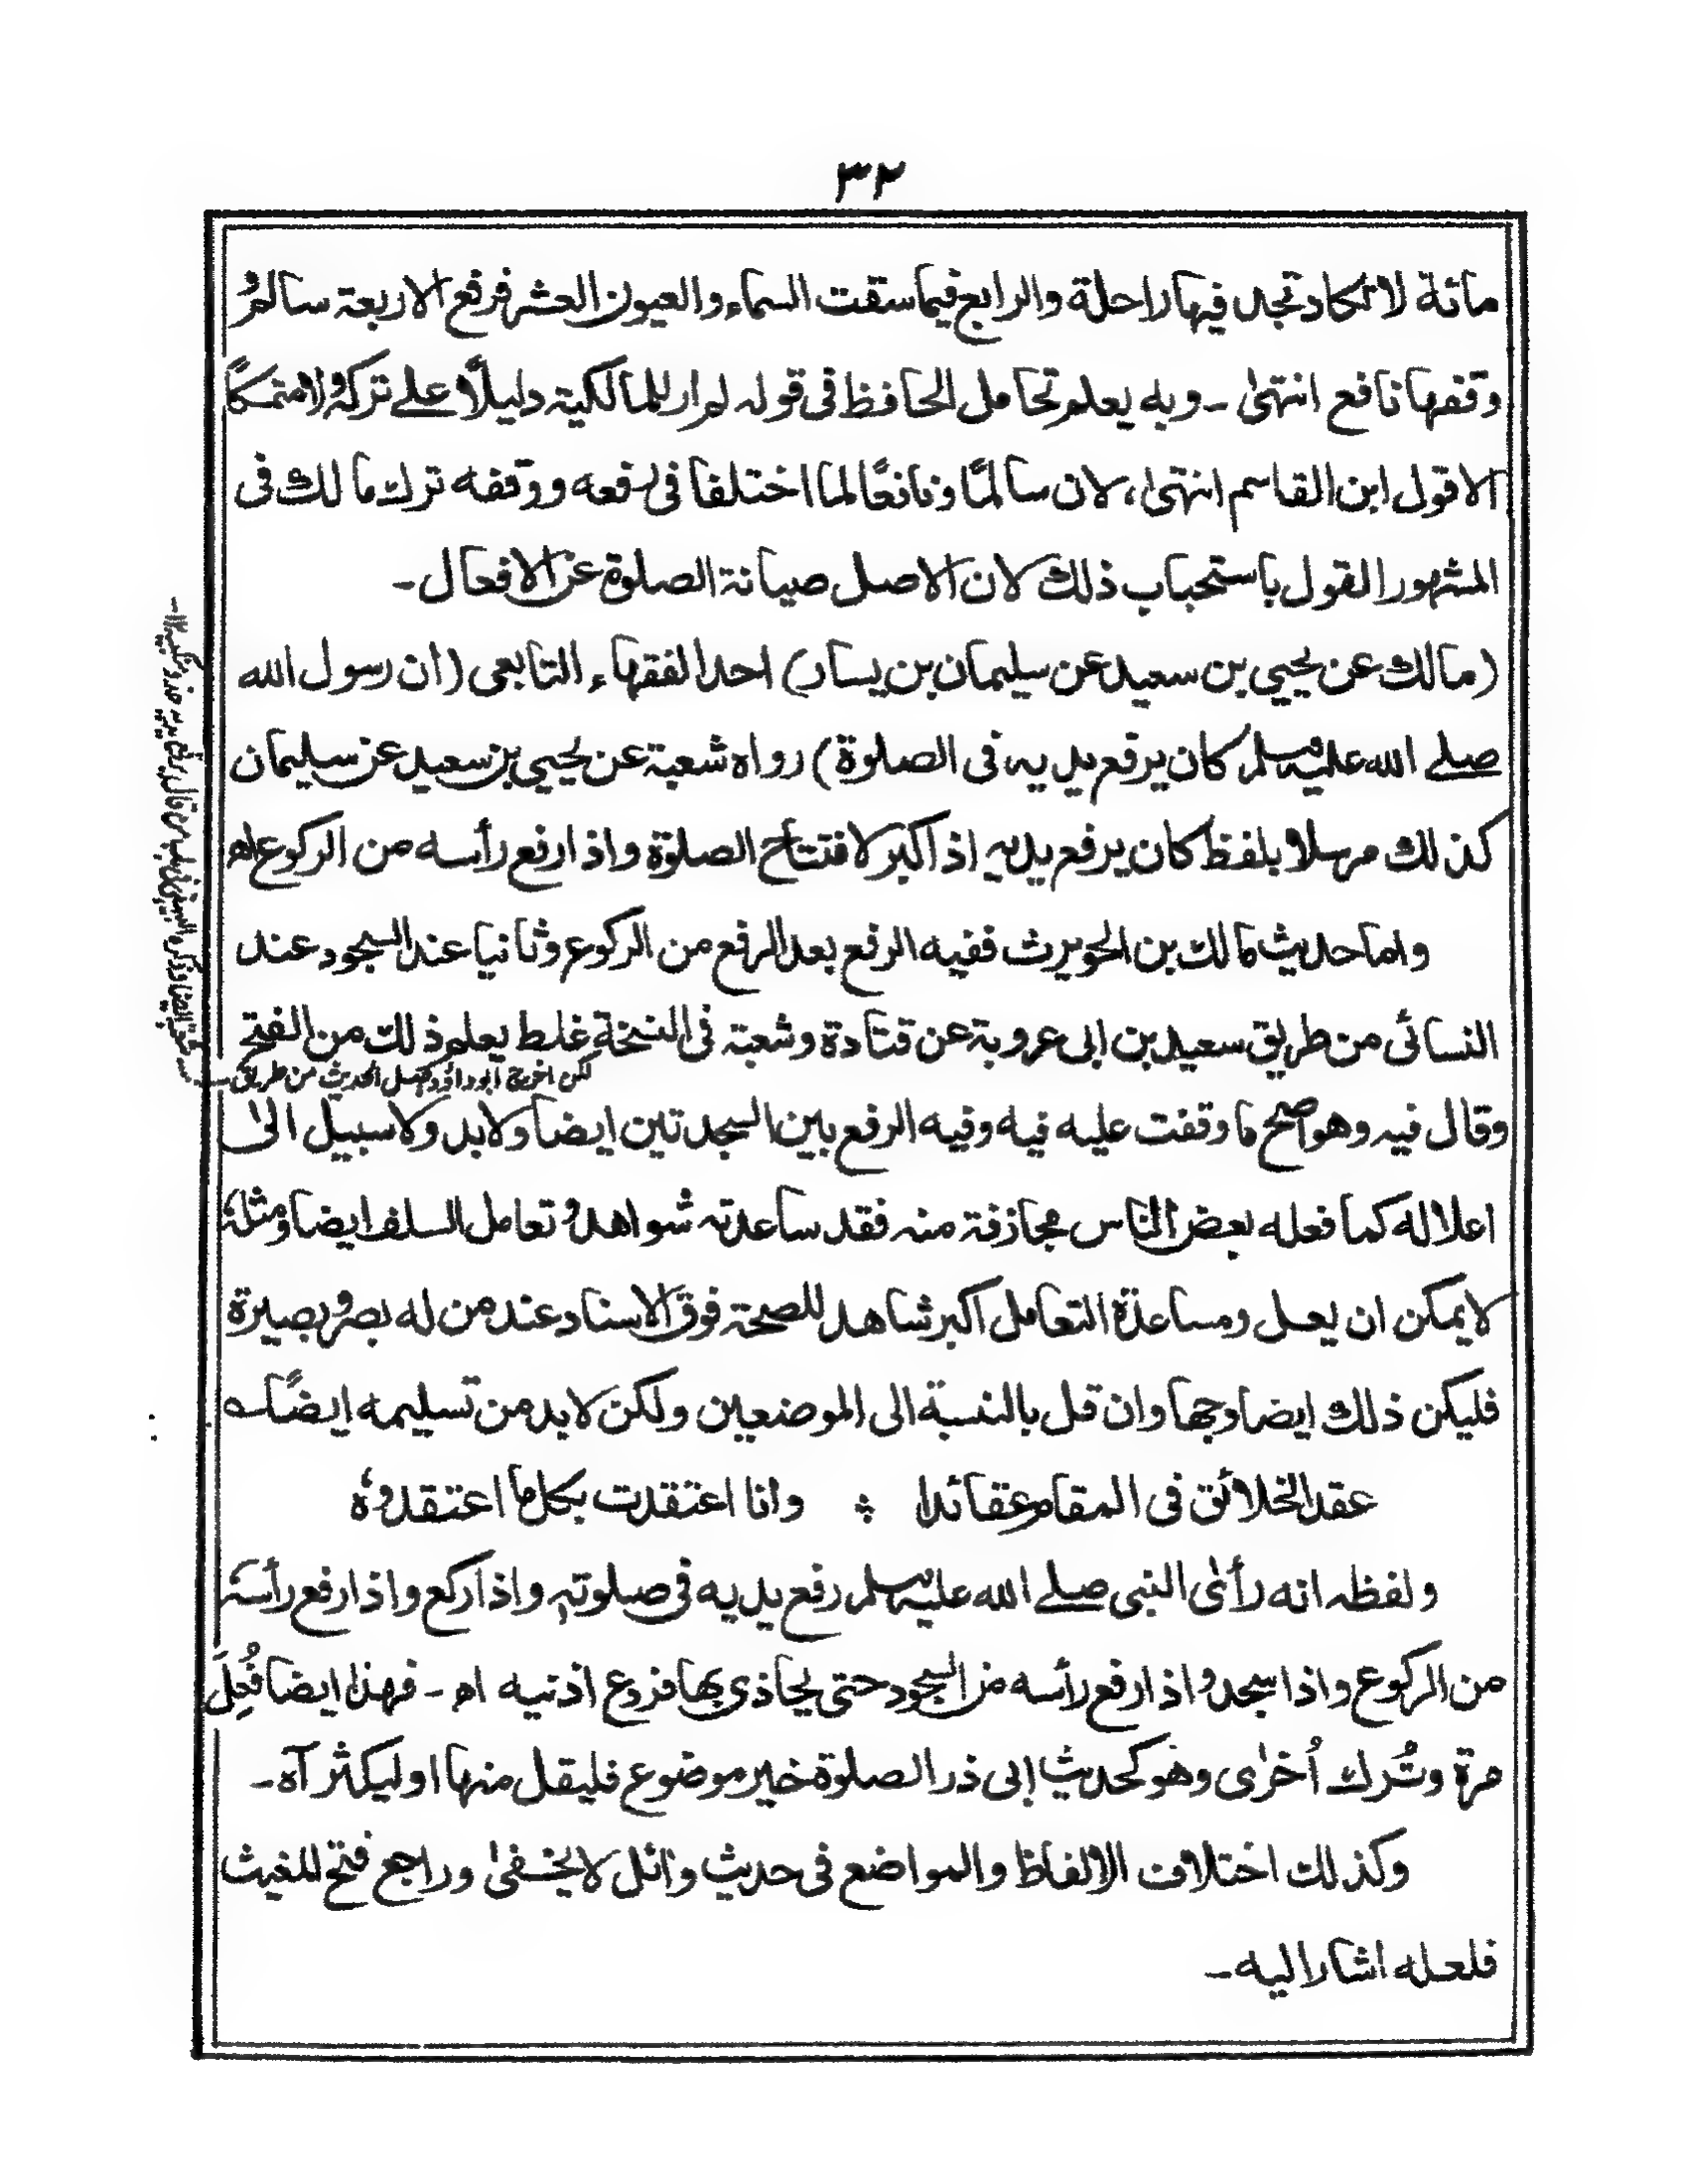 ٣٢
مائة لا تكاد تجد فيها راحلة والرابع فيما سقت السماء والعيون العشر فرفع الاربعة سالم و
وقفها نافع انتهىٰ ـ وبه يعلم تحامل الحافظ فى قوله لم ار للمالكية دليلًا على تركه ولا متمسكًا
الا قول ابن القاسم انتهىٰ، لان سالمًا ونافعًا لما اختلفا فى رفعه ووقفه ترك مالك فى
المشهور القول باستحباب ذلك لان الاصل صيانة الصلوة عن الافعال ـ
(مالك عن يحيي بن سعيد عن سليمان بن يسار) احد الفقهاء التابعى (ان رسول الله
صلے الله عليه وسلم كان يرفع يديه فى الصلوة) رواه شعبة عن يحيي بن سعيد عن سليمان
كذلك مرسلا بلفظ كان يرفع يديه اذا كبر لافتتاح الصلوة واذا رفع رأسه من الركوع اھ
واما حديث مالك بن الحويرث ففيه الرفع بعد الرفع من الركوع وثانيا عند السجود عند
النسائى من طريق سعيد بن ابى عروبة عن قتادة وشعبة فى النسخة غلط يعلم ذلك من الفتح
لكن اخرج ابو داؤد الحديث من طريق
وقال فيه وهو اصح ما وقفت عليه فيه وفيه الرفع بين السجدتين ايضا ولا بد ولا سبيل الىٰ
اعلاله كما فعله بعض الناس مجازفة منه فقد ساعدته شواهد و تعامل السلف ايضا ومثله
لا يمكن ان يعل ومساعدة التعامل اكبر شاهد للصحة فوق الاسناد عند من له بصر وبصيرة
فليكن ذلك ايضا وجها وان قل بالنسبة الى الموضعين ولكن لا بد من تسليمه ايضًا ـه
عقد الخلائق فى المقام عقائدا ؞ وانا اعتقدت بكل ما اعتقدوهٗ
ولفظه انه رأىٰ النبى صلے الله عليه وسلم رفع يديه فى صلوته واذا ركع واذا رفع رأسه
من الركوع واذا سجد واذا رفع رأسه من السجود حتى يحاذى بها فروع اذنيه اھ ـ فهذا ايضا فُعِلَ
مرة وتُرك اُخرٰى وهو كحديث إبى ذر الصلوة خير موضوع فليقل منها او ليكثر آه ـ
وكذلك اختلاف الالفاظ والمواضع فى حديث وائل لا يخفىٰ وراجع فتح المغيث
فلعله اشار اليه ـ